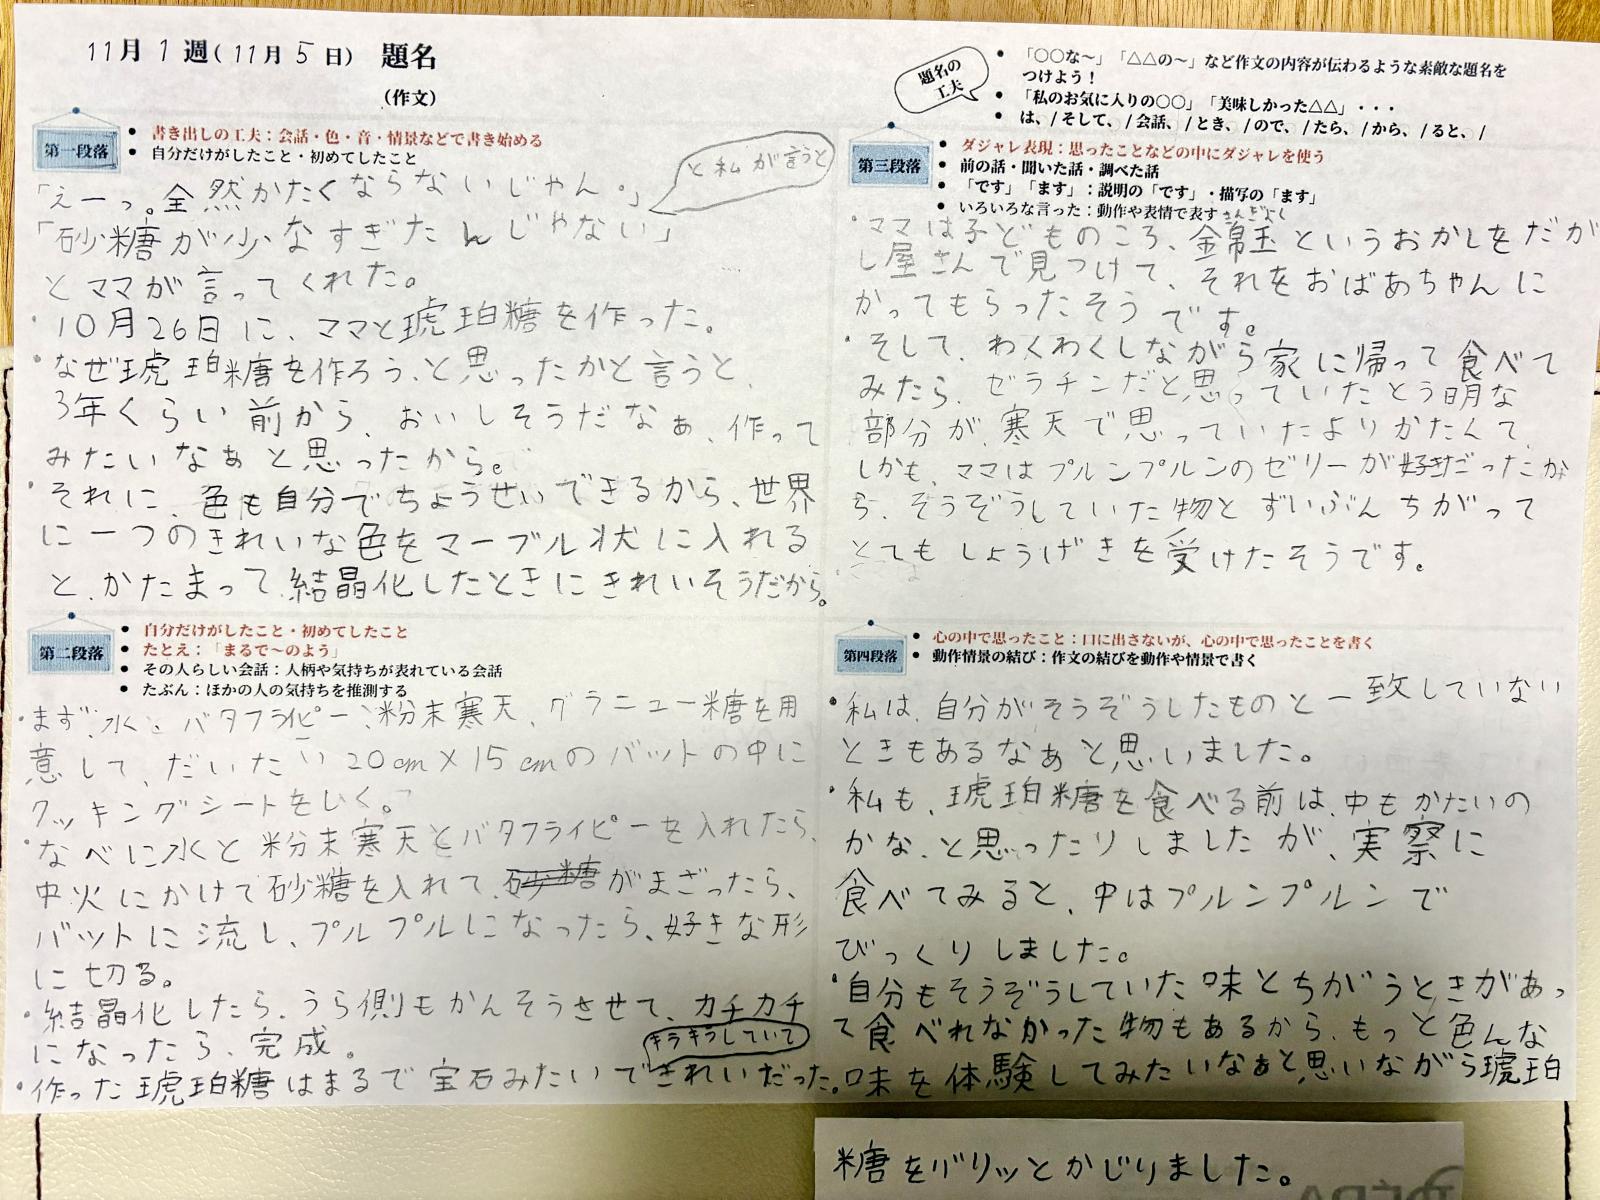 11月 1 週(11月 5 日) 題名
(作文)
題名の
工夫
● 「○○な～」「△△の～」など作文の内容が伝わるような素敵な題名を
つけよう！
● 「私のお気に入りの○○」「美味しかった△△」・・・
● は、/ そして、/ 会話、/ とき、/ ので、/ たら、/ から、/ ると、/
第一段落
● 書き出しの工夫：会話・色・音・情景などで書き始める
● 自分だけがしたこと・初めてしたこと
と私が言うと
「えーっ。全然かたくならないじゃん。」
「砂糖が少なすぎたんじゃない」
とママが言ってくれた。
・10月26日に、ママと琥珀糖を作った。
・なぜ琥珀糖を作ろう、と思ったかと言うと、
3年くらい前から、おいしそうだなぁ、作って
みたいなぁと思ったから。
・それに、色も自分でちょうせいできるから、世界
に一つのきれいな色をマーブル状に入れる
と、かたまって、結晶化したときにきれいそうだから。
第二段落
● 自分だけがしたこと・初めてしたこと
● たとえ：「まるで～のよう」
● その人らしい会話：人柄や気持ちが表れている会話
● たぶん：ほかの人の気持ちを推測する
・まず、水とバタフライピー、粉末寒天、グラニュー糖を用
意して、だいたい20cm×15cmのバットの中に
クッキングシートをしく。
・なべに水と粉末寒天とバタフライピーを入れたら、
中火にかけて砂糖を入れて、砂糖がまざったら、
バットに流し、プルプルになったら、好きな形
に切る。
・結晶化したら、うら側もかんそうさせて、カチカチ
になったら、完成。
キラキラしていて
・作った琥珀糖はまるで宝石みたいできれいだった。
第三段落
● ダジャレ表現：思ったことなどの中にダジャレを使う
● 前の話・聞いた話・調べた話
● 「です」「ます」：説明の「です」・描写の「ます」
● いろいろな言った：動作や表情で表す
きんぎょく
・ママは子どものころ、金錦玉というおかしをだが
し屋さんで見つけて、それをおばあちゃんに
かってもらったそうです。
・そして、わくわくしながら家に帰って食べて
みたら、ゼラチンだと思っていたとう明な
部分が、寒天で思っていたよりかたくて、
しかも、ママはプルンプルンのゼリーが好きだったか
ら、そうぞうしていた物とずいぶんちがって
とてもしょうげきを受けたそうです。
第四段落
● 心の中で思ったこと：口に出さないが、心の中で思ったことを書く
● 動作情景の結び：作文の結びを動作や情景で書く
・私は、自分がそうぞうしたものと一致していない
ときもあるなぁと思いました。
・私も、琥珀糖を食べる前は、中もかたいの
かな、と思ったりしましたが、実察に
食べてみると、中はプルンプルンで
びっくりしました。
・自分もそうぞうしていた味とちがうときがあっ
て食べれなかった物もあるから、もっと色んな
味を体験してみたいなぁと思いながら琥珀
糖をバリッとかじりました。